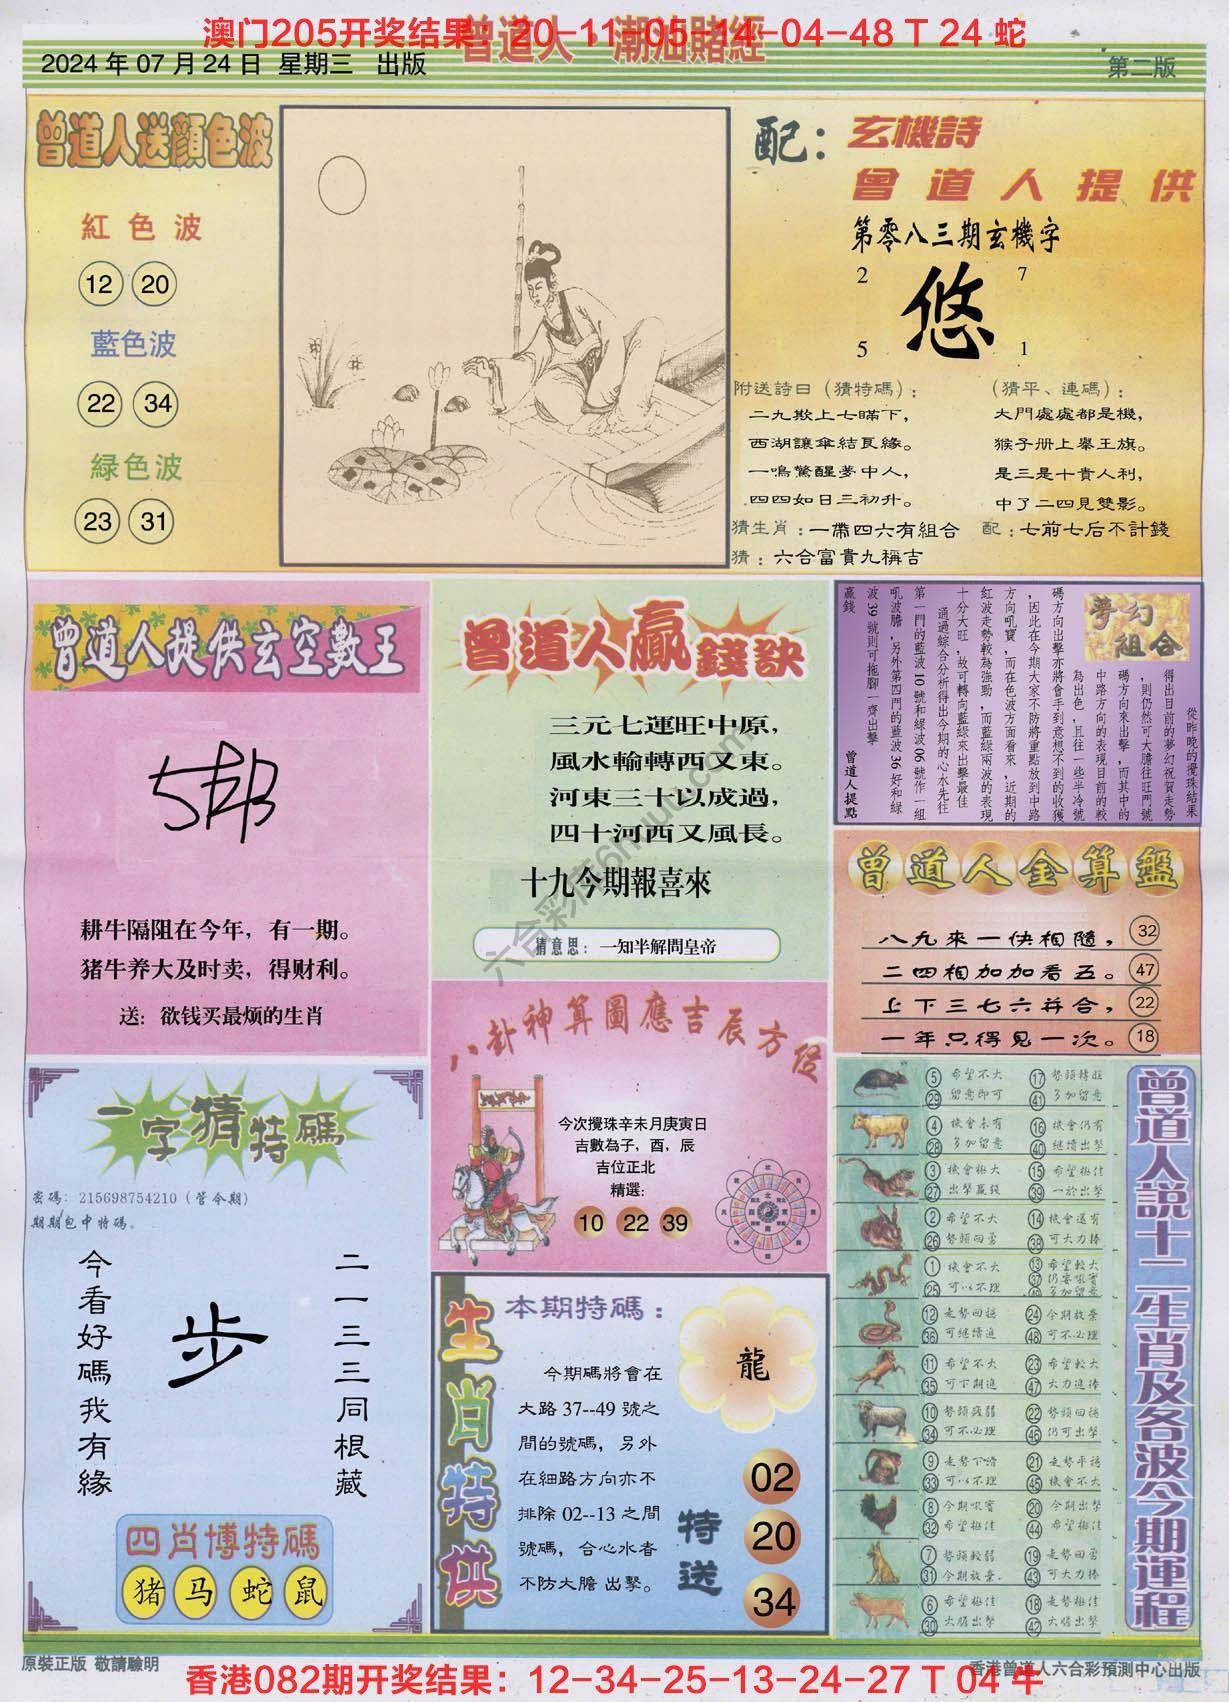 澳门205开奖结果：20-11-05-14-04-48 T 24 蛇
2024 年 07 月 24 日 星期三 出版
第二版
曾道人送顏色波
紅色波
12 20
藍色波
22 34
緑色波
23 31
配：玄機詩
曾道人提供
第零八三期玄機字
2 7
悠
5 1
附送詩曰（猜特碼）：
二九欺上七瞞下，
西湖讓傘結良緣。
一鳴驚醒夢中人，
四四如日三初升。
（猜平、連碼）：
大門處處都是機，
猴子册上舉王旗。
是三是十貴人利，
中了二四見雙影。
猜生肖：一帶四六有組合
配：七前七后不計錢
猜：六合富貴九稱吉
曾道人提供玄空數王
耕牛隔阻在今年，有一期。
猪牛养大及时卖，得财利。
送：欲钱买最烦的生肖
曾道人贏錢訣
三元七運旺中原，
風水輪轉西又東。
河東三十以成過，
四十河西又風長。
十九今期報喜來
猜意思：一知半解問皇帝
夢幻組合
從昨晚的攪珠結果
得出目前的夢幻祝賀走勢
，則仍然可大膽往旺門號
碼方向來出擊，而其中的
中路方向的表現目前的較
為出色，且往一些半冷號
碼方向出擊亦將會手到意想不到的收獲
，因此在今期大家不防將重點放到中路
方向吼寶，而在色波方面看來，近期的
紅波走勢較為強勁，而藍綠兩波的表現
十分大旺，故可轉向藍綠來出擊最佳
通過綜合分析得出今期的心水先往
第一門的藍波 10 號和綠波 06 號作一組
吼波膽，另外第四門的藍波 36 好和綠
波 39 號則可拖腳一齊出擊
贏錢
曾道人提點
曾道人金算盤
八九來一伏相隨， 32
二四相加加看五。 47
上下三七六并合， 22
一年只得見一次。 18
八卦神算圖應吉辰方位
今次攪珠辛未月庚寅日
吉數為子，酉，辰
吉位正北
精選：
10 22 39
一字猜特碼
密碼：215698754210（管令期）
期期包中特碼。
今看好碼我有緣
步
二一三三同根藏
四肖博特碼
猪 马 蛇 鼠
生肖特供
本期特碼：
龍
今期碼將會在
大路 37--49 號之
間的號碼，另外
在細路方向亦不
排除 02--13 之間
號碼，合心水者
不防大膽 出擊。
特送
02
20
34
曾道人說十二生肖及各波今期運程
5 希望不大 17 勢頭轉旺
29 留意即可 41 多加留意
4 機會未有 16 機會仍有
28 多加留意 40 繼續出擊
3 機會極大 15 希望極佳
27 出擊贏錢 39 一於出擊
2 希望不大 14 機會還有
26 勢頭回落 38 可大力捧
1 機會不大 13 希望較大
25 可以不理 37
12 走勢回穩 24 今期放棄
36 可繼續追 48 可不必理
11 希望不大 23 希望較大
35 可下期追 47 大力追捧
10 勢頭疲弱 22 勢頭回穩
34 可不必理 46 仍可出擊
9 走勢下滑 21 走勢平穩
33 可以不理 45 機會不大
8 今期吼寶 20 今期出擊
32 希望極佳 44 希望極佳
7 勢頭較弱 19 走勢回落
31 今期放棄. 43 可大力捧
6 希望極佳 18 走勢極佳
30 大膽出擊 42 大膽出擊
六合彩库6hkuu.com
原裝正版 敬請驗明
香港082期开奖结果：12-34-25-13-24-27 T 04 牛
香港曾道人六合彩預測中心出版